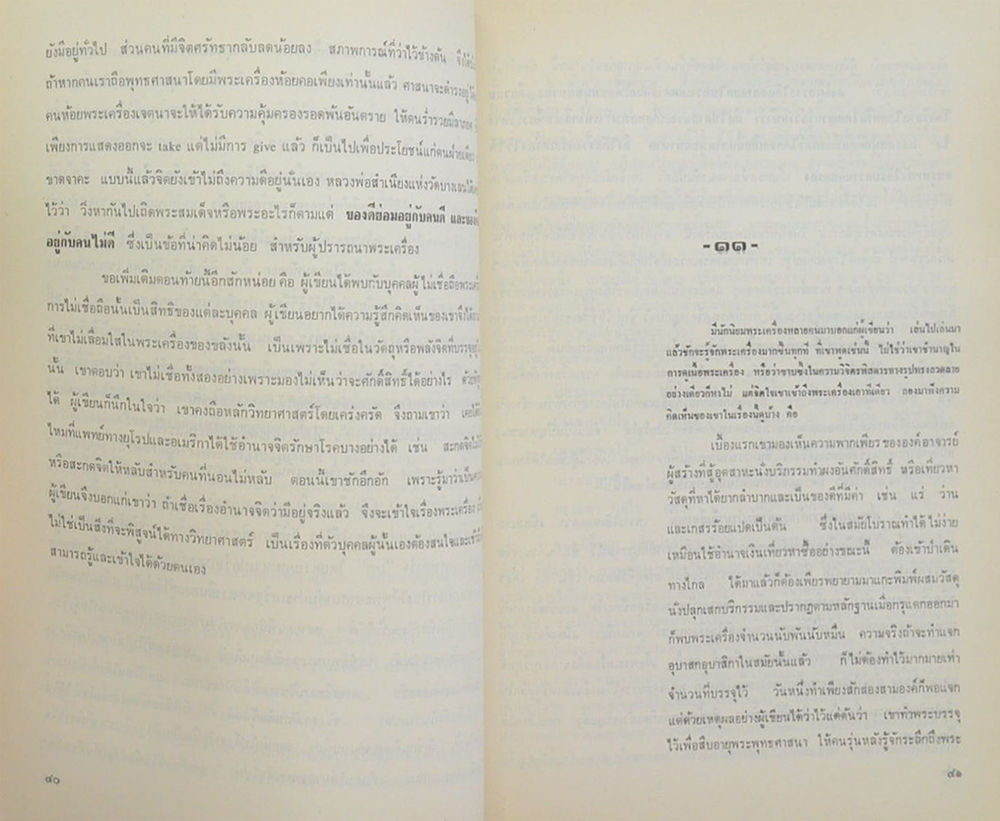 ยังมีอยู่ทั่วไป ส่วนคนที่มีจิตศรัทธากลับลดน้อยลง สภาพการณ์ที่ว่าไว้ข้างต้น
ถ้าหากคนเราถือพุทธศาสนาโดยมีพระเครื่องห้อยคอเพียงเท่านั้นแล้ว ศาสนาจะดำรงอยู่
คนห้อยพระเครื่องเจตนาจะให้ได้รับความคุ้มครองรอดพ้นอันตราย ให้คนร่ำรวยมีลาภยศ
เพียงการแสดงออกจะ take แต่ไม่มีการ give แล้ว ก็เป็นไปเพื่อประโยชน์แก่ตนฝ่ายเดียว
ขาดจาคะ แบบนี้แล้วจิตยังเข้าไม่ถึงความดีอยู่นั่นเอง หลวงพ่อสำเนียงแห่งวัดบางเลนได้
ไว้ว่า วิ่งหากันไปเถิดพระสมเด็จหรือพระอะไรก็ตามแต่ ของดีย่อมอยู่กับคนดี และของ
อยู่กับคนไม่ดี ซึ่งเป็นข้อที่น่าคิดไม่น้อย สำหรับผู้ปรารถนาพระเครื่อง
ขอเพิ่มเติมตอนท้ายนี้อีกสักหน่อย คือ ผู้เขียนได้พบกับบุคคลผู้ไม่เชื่อถือพระ
การไม่เชื่อถือนั้นเป็นสิทธิของแต่ละบุคคล ผู้เขียนอยากได้ความรู้สึกคิดเห็นของเขาจึงได้
ที่เขาไม่เลื่อมใสในพระเครื่องของขลังนั้น เป็นเพราะไม่เชื่อในวัตถุหรือพลังจิตที่บรรจุ
นั้น เขาตอบว่า เขาไม่เชื่อทั้งสองอย่างเพราะมองไม่เห็นว่าจะศักดิ์สิทธิ์ได้อย่างไร
ได้ ผู้เขียนก็นึกในใจว่า เขาคงถือหลักวิทยาศาสตร์โดยเคร่งครัด จึงถามเขาว่า เคย
ไหมที่แพทย์ทางยุโรปและอเมริกาได้ใช้อำนาจจิตรักษาโรคบางอย่างได้ เช่น สะกดจิต
หรือสะกดจิตให้หลับสำหรับคนที่นอนไม่หลับ ตอนนี้เขาชักอึกอัก เพราะรู้มาว่าเป็น
ผู้เขียนจึงบอกแก่เขาว่า ถ้าเชื่อเรื่องอำนาจจิตว่ามีอยู่จริงแล้ว จึงจะเข้าใจเรื่องพระเครื่อง
ไม่ใช่เป็นสิ่งที่จะพิสูจน์ได้ทางวิทยาศาสตร์ เป็นเรื่องที่ตัวบุคคลผู้นั้นเองต้องสนใจและ
สามารถรู้และเข้าใจได้ด้วยตนเอง
๔๐
-๑๑-
มีนักนิยมพระเครื่องหลายคนมาบอกแก่ผู้เขียนว่า เล่นไปเล่นมา
แล้วชักจะรู้จักพระเครื่องมากขึ้นทุกที ที่เขาพูดเช่นนี้ ไม่ใช่ว่าเขาชำนาญใน
การดูเนื้อพระเครื่อง หรือว่าซาบซึ้งในความวิจิตรพิสดารทางรูปทรงลวดลาย
อย่างเดียวก็หาไม่ แต่จิตใจเขาเข้าถึงพระเครื่องเอาทีเดียว ลองมาฟังความ
คิดเห็นของเขาในเรื่องนี้ดูบ้าง คือ
เบื้องแรกเขามองเห็นความพากเพียรขององค์อาจารย์
ผู้สร้างที่สู้อุตสาหะนั่งบริกรรมทำผงอันศักดิ์สิทธิ์ หรือเที่ยวหา
วัสดุที่หาได้ยากลำบากและเป็นของดีที่มีค่า เช่น แร่ ว่าน
และเกสรร้อยแปดเป็นต้น ซึ่งในสมัยโบราณทำได้ไม่ง่าย
เหมือนใช้อำนาจเงินเที่ยวหาซื้ออย่างขณะนี้ ต้องเข้าป่าเดิน
ทางไกล ได้มาแล้วก็ต้องเพียรพยายามมาแกะพิมพ์ผสมวัสดุ
นั่งปลุกเสกบริกรรมและปรากฏตามหลักฐานเมื่อกรุแตกออกมา
ก็พบพระเครื่องจำนวนนับพันนับหมื่น ความจริงถ้าจะทำแจก
อุบาสกอุบาสิกาในสมัยนั้นแล้ว ก็ไม่ต้องทำไว้มากมายเท่า
จำนวนที่บรรจุไว้ วันหนึ่งทำเพียงสักสองสามองค์ก็พอแจก
แต่ด้วยเหตุผลอย่างผู้เขียนได้ว่าไว้แต่ต้นว่า เขาทำพระบรรจุ
ไว้เพื่อสืบอายุพระพุทธศาสนา ให้คนรุ่นหลังรู้จักระลึกถึงพระ
๔๑